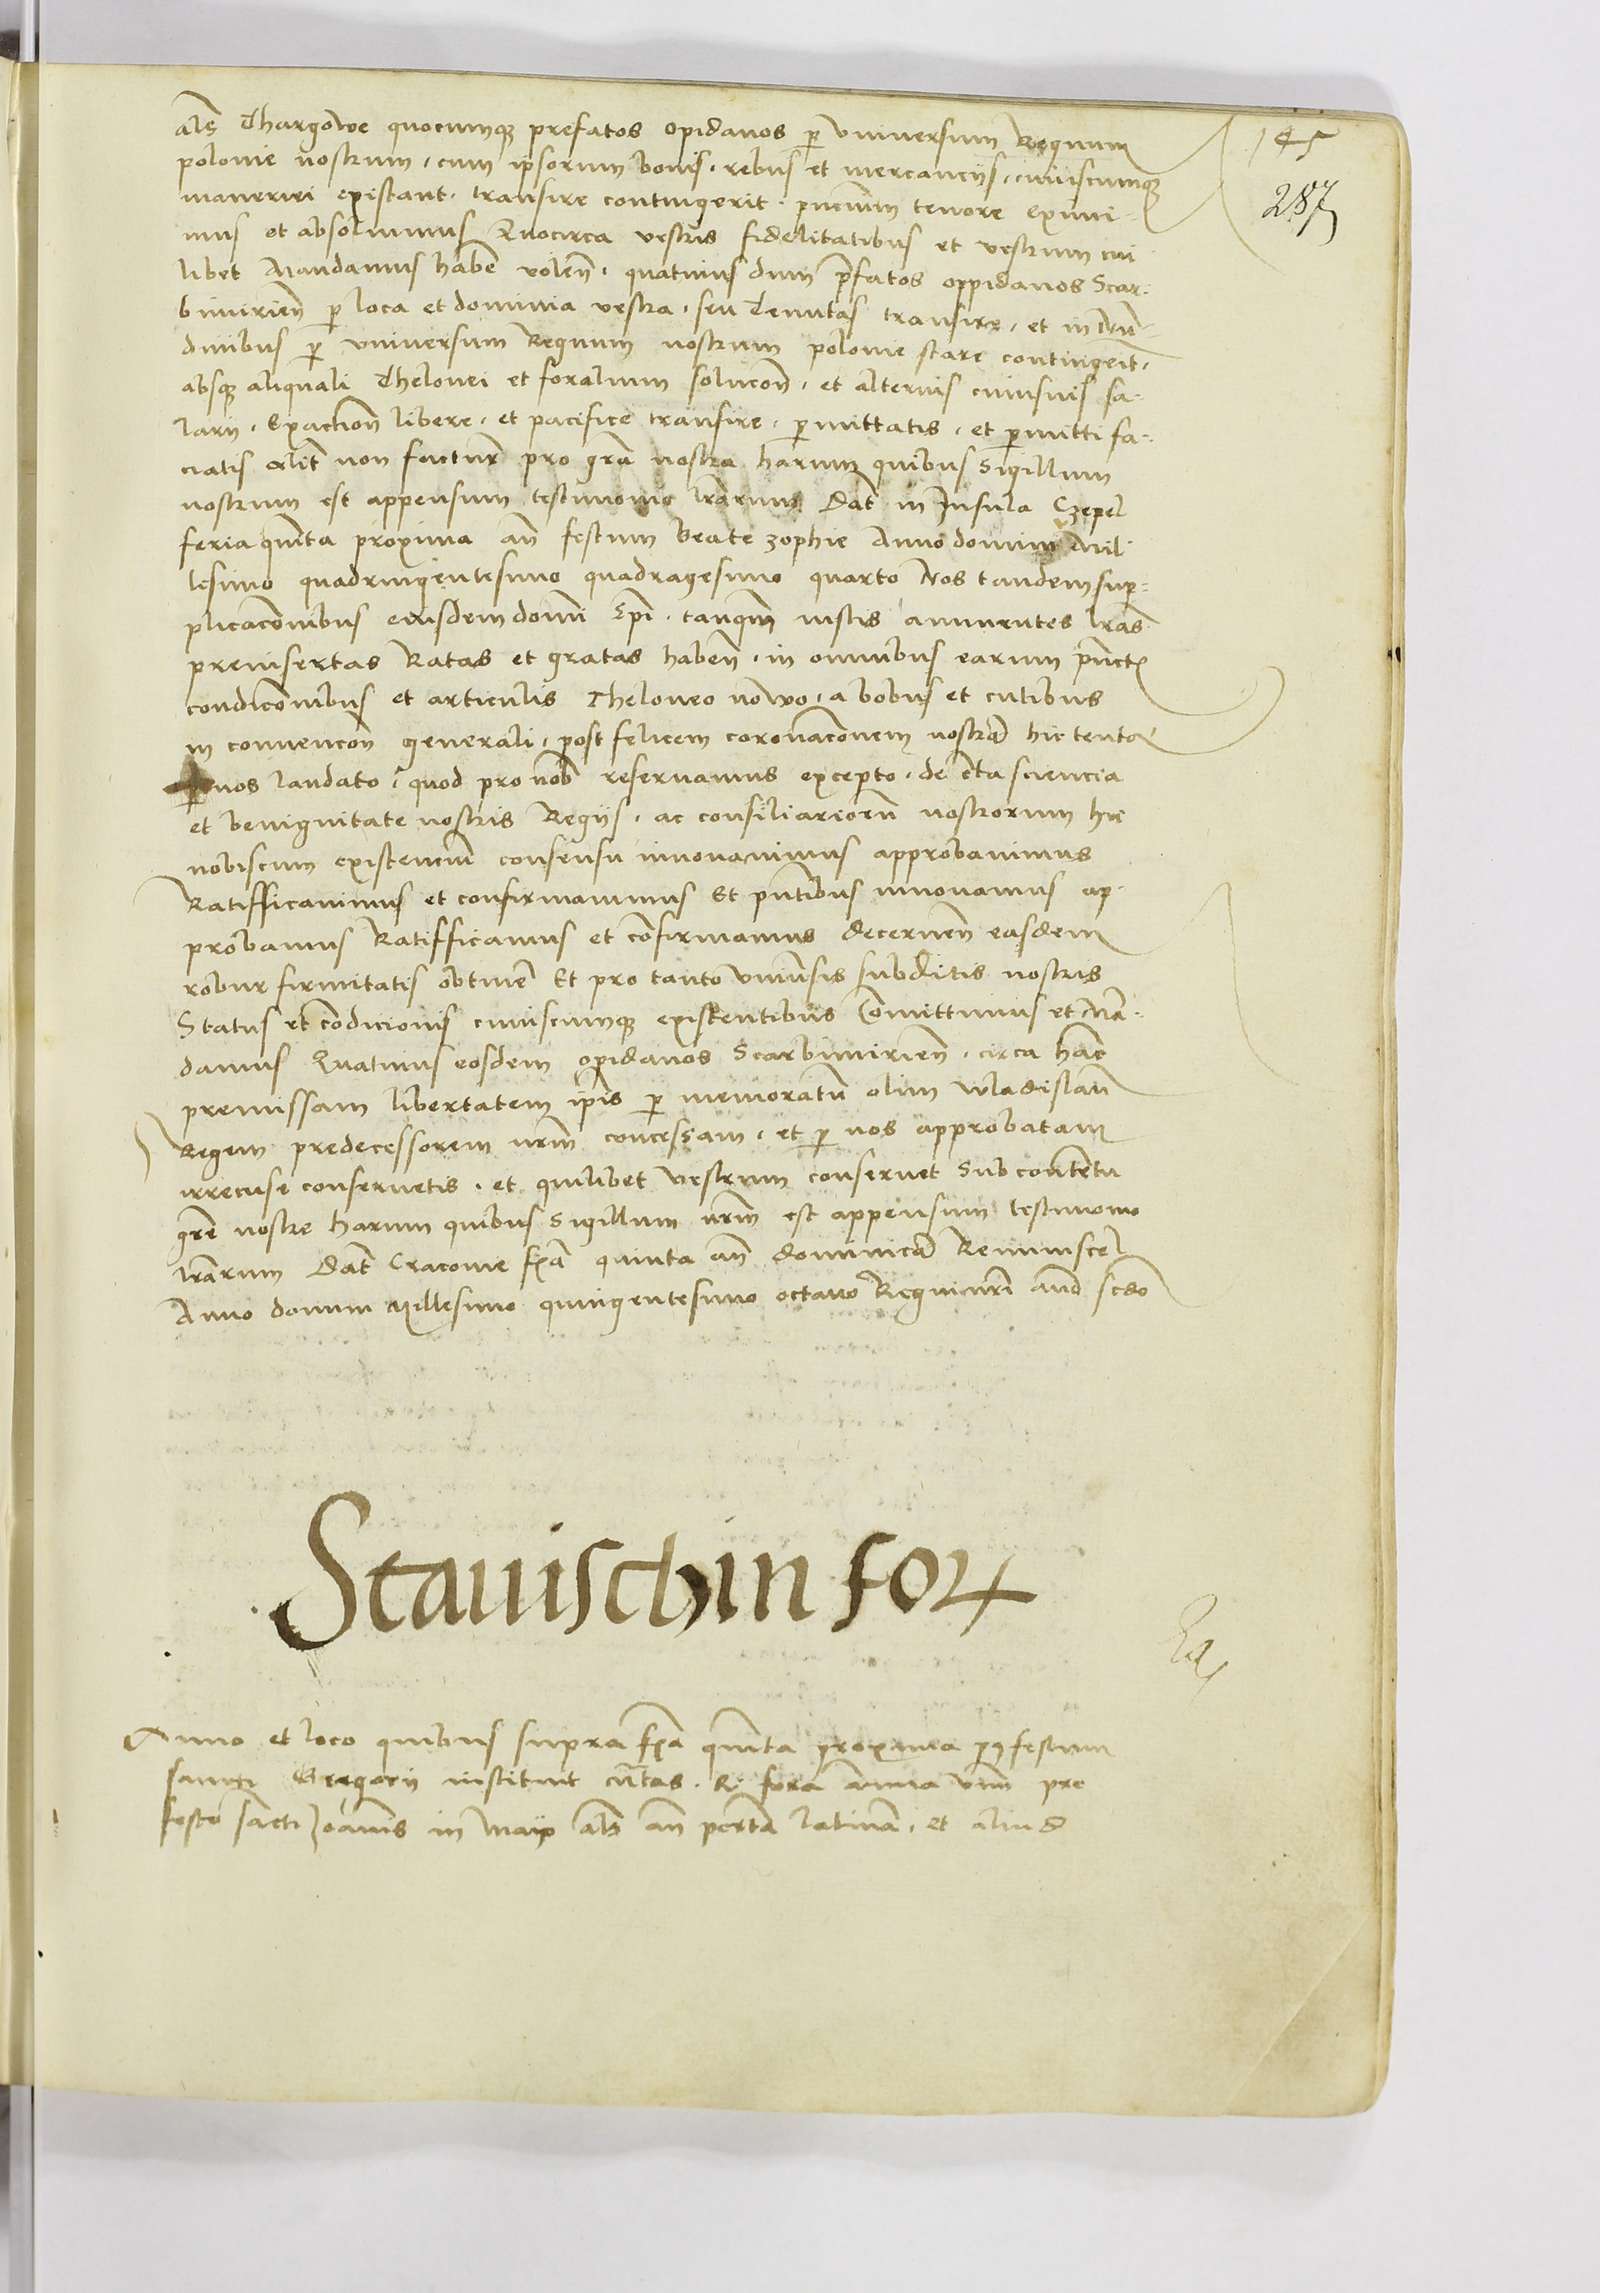 als Thargowe quocumque prefatos opidanos per universum Regnum
polonie nostrum, cum ipsorum bonis, rebus et mercanciis, cuiuscumque
maneriei existant, transire contingerit, pncium tenore eximi-
mus et absolvimus Quocirca vestris fidelitatibus et vestrum cui
libet Mandamus haben volen, quatinus dum prefatos oppidanos Scar-
bimirien per loca et dominia vestra, seu Tenutas transire, et in nun-
dinibus per universum Regnum nostrum polonie stare contingerit,
absque aliquali Thelonei et foralium solucon, et alterius cuiusvis sa-
larii, Exaction libere, et pacifice transire, permittatis, et permitti fa-
ciatis alit non factur pro gra nostra harum quibus Sigillum
nostrum est appensum testimonio lrarum Dat in Insula Czepel
feria quinta proxima an festum beate zophie Anno domini Mil-
lesimo quadringentesimo quadragesimo quarto Nos tandem sup-
plicaconibus eiusdem domi Epi, tanqm iustis annuentes lras
preinsertas Ratas et gratas haben, in omnibus earum punctis
condiconibus et articulis Theloneo novo, a bobus et cutibus
in convencon generali, post felicem coronaconem nostra hic tenta
per nos laudato, quod pro nob reservamus excepto, de certa sciencia
et benignitate nostris Regiis, ac consiliariorum nostrorum hic
nobiscum existencium consensu innovavimus approbavimus
Ratifficavimus et confirmavimus Et pntibus innovamus ap-
probamus Ratifficamus et confirmamus decernen easdem
robur firmitatis obtinere Et pro tanto universis subditis nostris
Status et condicionis cuiuscumque existentibus Comittimus et Man-
damus Quatinus eosdem opidanos Scarbimirien, circa hanc
premissam libertatem ipis per memoratum olim Wladislaum
Regem predecessorem nrm concessam, et per nos approbatam
irrecuse conservetis, et quilibet vestrum conservet Sub contentu
gre nostre harum quibus Sigillum nrm est appensum testimonio
lrarum Dat Cracovie fria quinta an dominica Reminiscere
Anno domini Millesimo quingentesimo octavo Regni nri anno scdo
145
287
Stavischin for
Anno et loco quibus supra fria quinta proxima post festum
sancti Gregorii instituit mtas. R. fora annua unum pro
festo sancti Joannis in Mayo als an portam latinam, et aliud